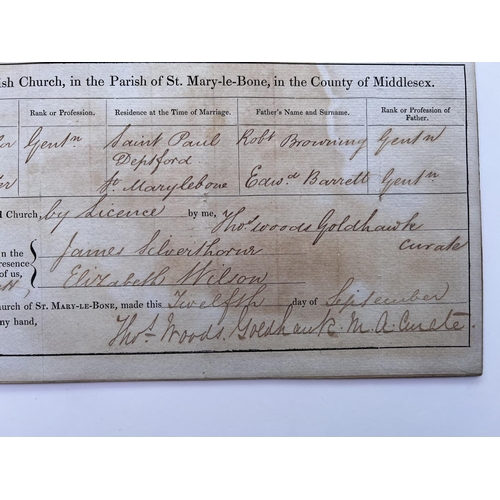 ish Church, in the Parish of St. Mary-le-Bone, in the County of Middlesex.
Rank or Profession. Residence at the Time of Marriage. Father's Name and Surname. Rank or Profession of Father.
lor Gentn Saint Paul Deptford Robt Browning Gentn
ter St Marylebone Edwd Barrett Gentn
d Church, by Licence by me, Thos Woods Goldhawk
curate
n the James Silverthorne
resence
of us, Elizabeth Wilson
hurch of St. Mary-le-Bone, made this Twelfth day of September
ny hand, Thos. Woods. Goldhawk. M.A. Curate.